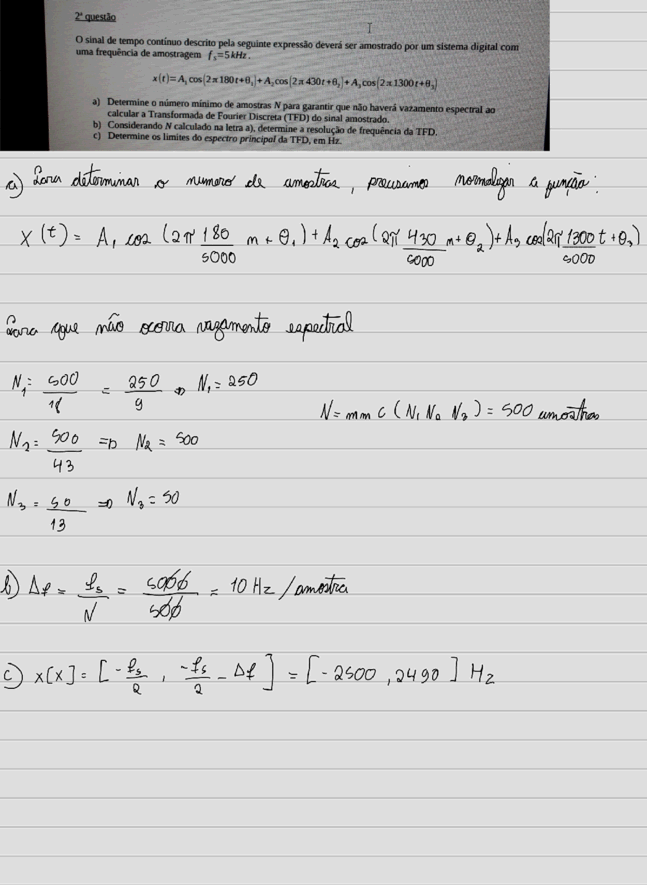 2ª questão
O sinal de tempo contínuo descrito pela seguinte expressão deverá ser amostrado por um sistema digital com
uma frequência de amostragem f_s=5kHz.
x(t)=A₁cos(2π180t+θ₁)+A₂cos(2π430t+θ₂)+A₃cos(2π1300t+θ₃)
a) Determine o número mínimo de amostras N para garantir que não haverá vazamento espectral ao
calcular a Transformada de Fourier Discreta (TFD) do sinal amostrado.
b) Considerando N calculado na letra a), determine a resolução de frequência da TFD.
c) Determine os limites do espectro principal da TFD, em Hz.
a) Para determinar o numero de amostras, precisamos normalizar a função:
X(t) = A₁ cos (2π 180/5000 n + θ₁) + A₂ cos (2π 430/5000 n + θ₂) + A₃ cos(2π 1300/5000 t + θ₃)
Para que não ocorra vazamento espectral
N₁ = 500/18 = 250/9 ⇒ N₁ = 250
N = mmc (N₁ N₂ N₃) = 500 amostras
N₂ = 500/43 ⇒ N₂ = 500
N₃ = 50/13 ⇒ N₃ = 50
b) Δf = fs/N = 5000/500 = 10 Hz / amostra
c) X[X] = [-fs/2 , -fs/2 - Δf] = [-2500 , 2490] Hz